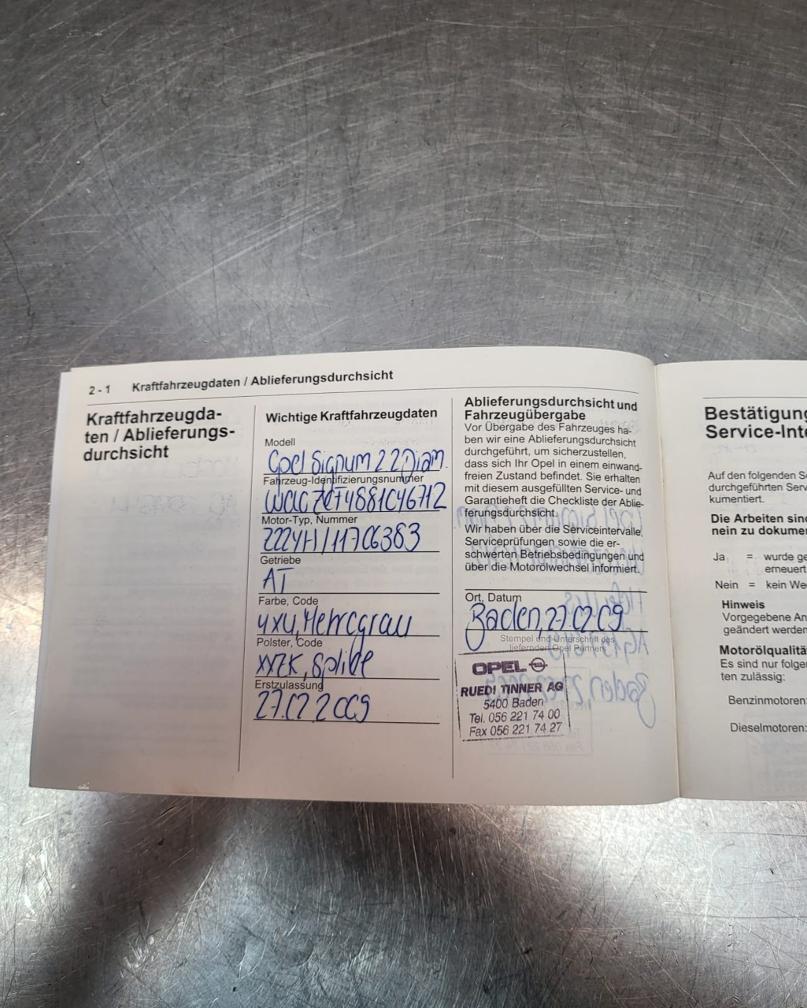 2 - 1 Kraftfahrzeugdaten / Ablieferungsdurchsicht
Kraftfahrzeugda-
ten / Ablieferungs-
durchsicht
Wichtige Kraftfahrzeugdaten
Modell
Opel Signum 2.2 Diam.
Fahrzeug-Identifizierungsnummer
Motor-Typ, Nummer
Z22YH / 11706383
Getriebe
AT
Farbe, Code
4XU, Metrograu
Polster, Code
Erstzulassung
27.02.2009
Ablieferungsdurchsicht und
Fahrzeugübergabe
Vor Übergabe des Fahrzeuges ha-
ben wir eine Ablieferungsdurchsicht
durchgeführt, um sicherzustellen,
dass sich Ihr Opel in einem einwand-
freien Zustand befindet. Sie erhalten
mit diesem ausgefüllten Service- und
Garantieheft die Checkliste der Ablie-
ferungsdurchsicht.
Wir haben über die Serviceintervalle,
Serviceprüfungen sowie die er-
schwerten Betriebsbedingungen und
über die Motorölwechsel informiert.
Ort, Datum
Baden, 27.02.09
Stempel und Unterschrift des
liefernden Opel Partners
OPEL
RUEDI TINNER AG
5400 Baden
Tel. 056 221 74 00
Fax 056 221 74 27
Bestätigung
Service-Int
Auf den folgenden S
durchgeführten Serv
kumentiert.
Die Arbeiten sind
nein zu dokumen
Ja = wurde ge
erneuert
Nein = kein We
Hinweis
Vorgegebene An
geändert werden
Motorölqualitä
Es sind nur folge
ten zulässig:
Benzinmotoren:
Dieselmotoren: